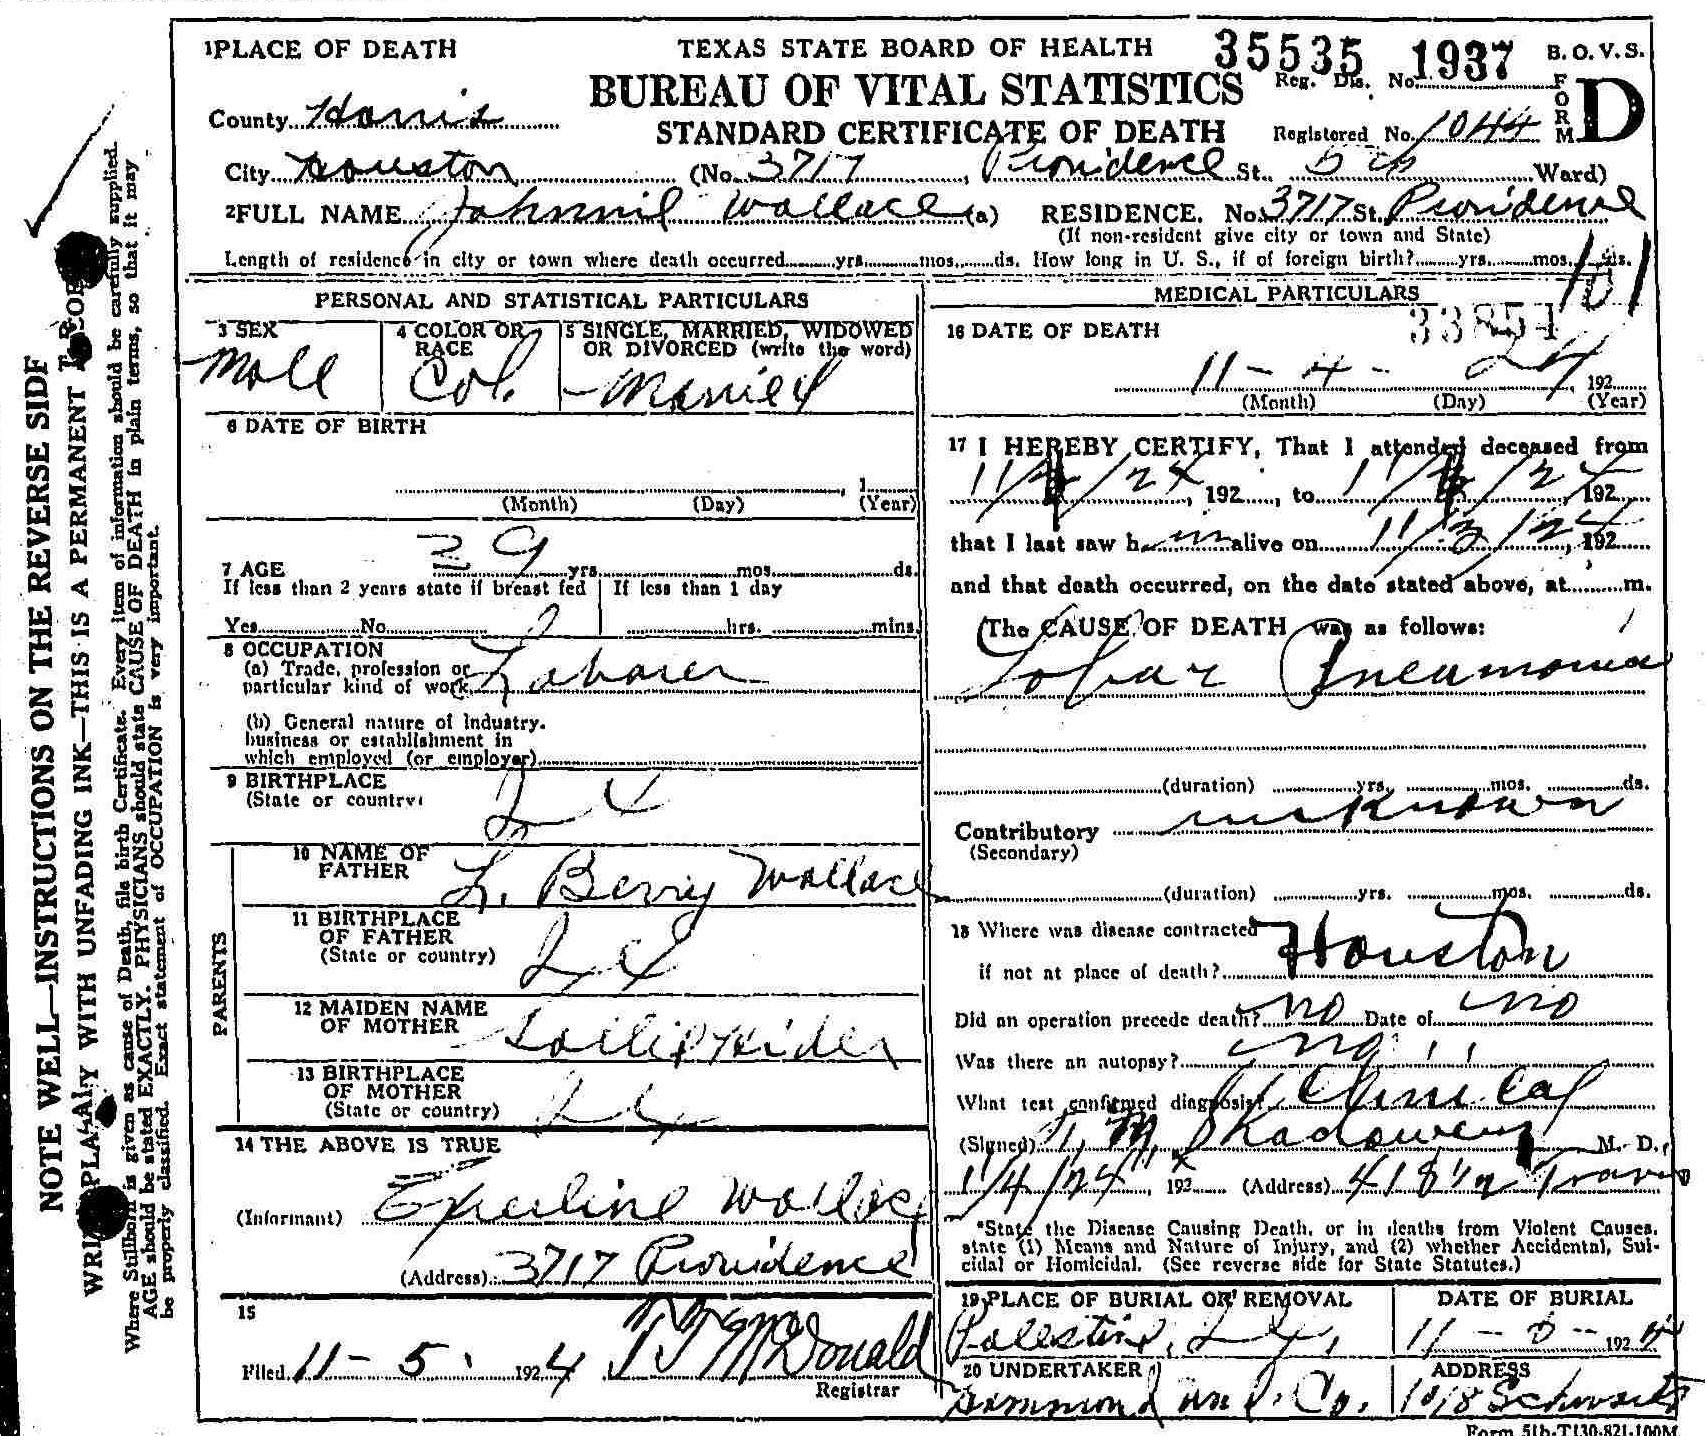 1 PLACE OF DEATH
TEXAS STATE BOARD OF HEALTH
35535
Reg. Dis. No. 1937
B. O. V. S.
FORM D
BUREAU OF VITAL STATISTICS
STANDARD CERTIFICATE OF DEATH
County Harris
Registered No. 1044
City Houston (No. 3717, Providence St. 5th Ward)
2 FULL NAME Johnnie Wallace (a) RESIDENCE. No. 3717 St. Providence
(If non-resident give city or town and State)
Length of residence in city or town where death occurred yrs. mos. ds. How long in U. S., if of foreign birth? yrs. mos. ds.
101
PERSONAL AND STATISTICAL PARTICULARS
3 SEX
Male
4 COLOR OR RACE
Col.
5 SINGLE, MARRIED, WIDOWED
OR DIVORCED (write the word)
Married
6 DATE OF BIRTH
, 1
(Month) (Day) (Year)
7 AGE 39 yrs. mos. ds.
If less than 2 years state if breast fed
Yes No
If less than 1 day
hrs. mins.
8 OCCUPATION
(a) Trade, profession or
particular kind of work Laborer
(b) General nature of Industry.
business or establishment in
which employed (or employer)
9 BIRTHPLACE
(State or country)
10 NAME OF
FATHER L. Berry Wallace
11 BIRTHPLACE
OF FATHER
(State or country)
12 MAIDEN NAME
OF MOTHER
13 BIRTHPLACE
OF MOTHER
(State or country)
PARENTS
14 THE ABOVE IS TRUE
(Informant) Wallace
(Address) 3717 Providence
15
Filed 11-5. 1924 McDonald
Registrar
MEDICAL PARTICULARS
33854
16 DATE OF DEATH
11-4-24 192
(Month) (Day) (Year)
17 I HEREBY CERTIFY, That I attended deceased from
11/4/24, 192, to 11/4/24, 192
that I last saw h im alive on 11/3/24, 192
and that death occurred, on the date stated above, at m.
The CAUSE OF DEATH was as follows:
Lobar Pneumonia
(duration) yrs. mos. ds.
Contributory unknown
(Secondary)
(duration) yrs. mos. ds.
18 Where was disease contracted
if not at place of death? Houston
Did an operation precede death? no Date of no
Was there an autopsy? no
What test confirmed diagnosis? Clinical
(Signed) M. D.
11/4/24, 192 (Address) 418 1/2 Travis
*State the Disease Causing Death, or in deaths from Violent Causes,
state (1) Means and Nature of Injury, and (2) whether Accidental, Sui-
cidal or Homicidal. (See reverse side for State Statutes.)
19 PLACE OF BURIAL OR REMOVAL
Palestine,
DATE OF BURIAL
1924
20 UNDERTAKER
Co.
ADDRESS
1018 Schwartz
Form 51b-T130-821-100M
NOTE WELL—INSTRUCTIONS ON THE REVERSE SIDE
WRITE PLAINLY WITH UNFADING INK—THIS IS A PERMANENT RECORD
Where Stillborn is given as cause of Death, file birth Certificate. Every item of information should be carefully supplied.
AGE should be stated EXACTLY. PHYSICIANS should state CAUSE OF DEATH in plain terms, so that it may
be properly classified. Exact statement of OCCUPATION is very important.